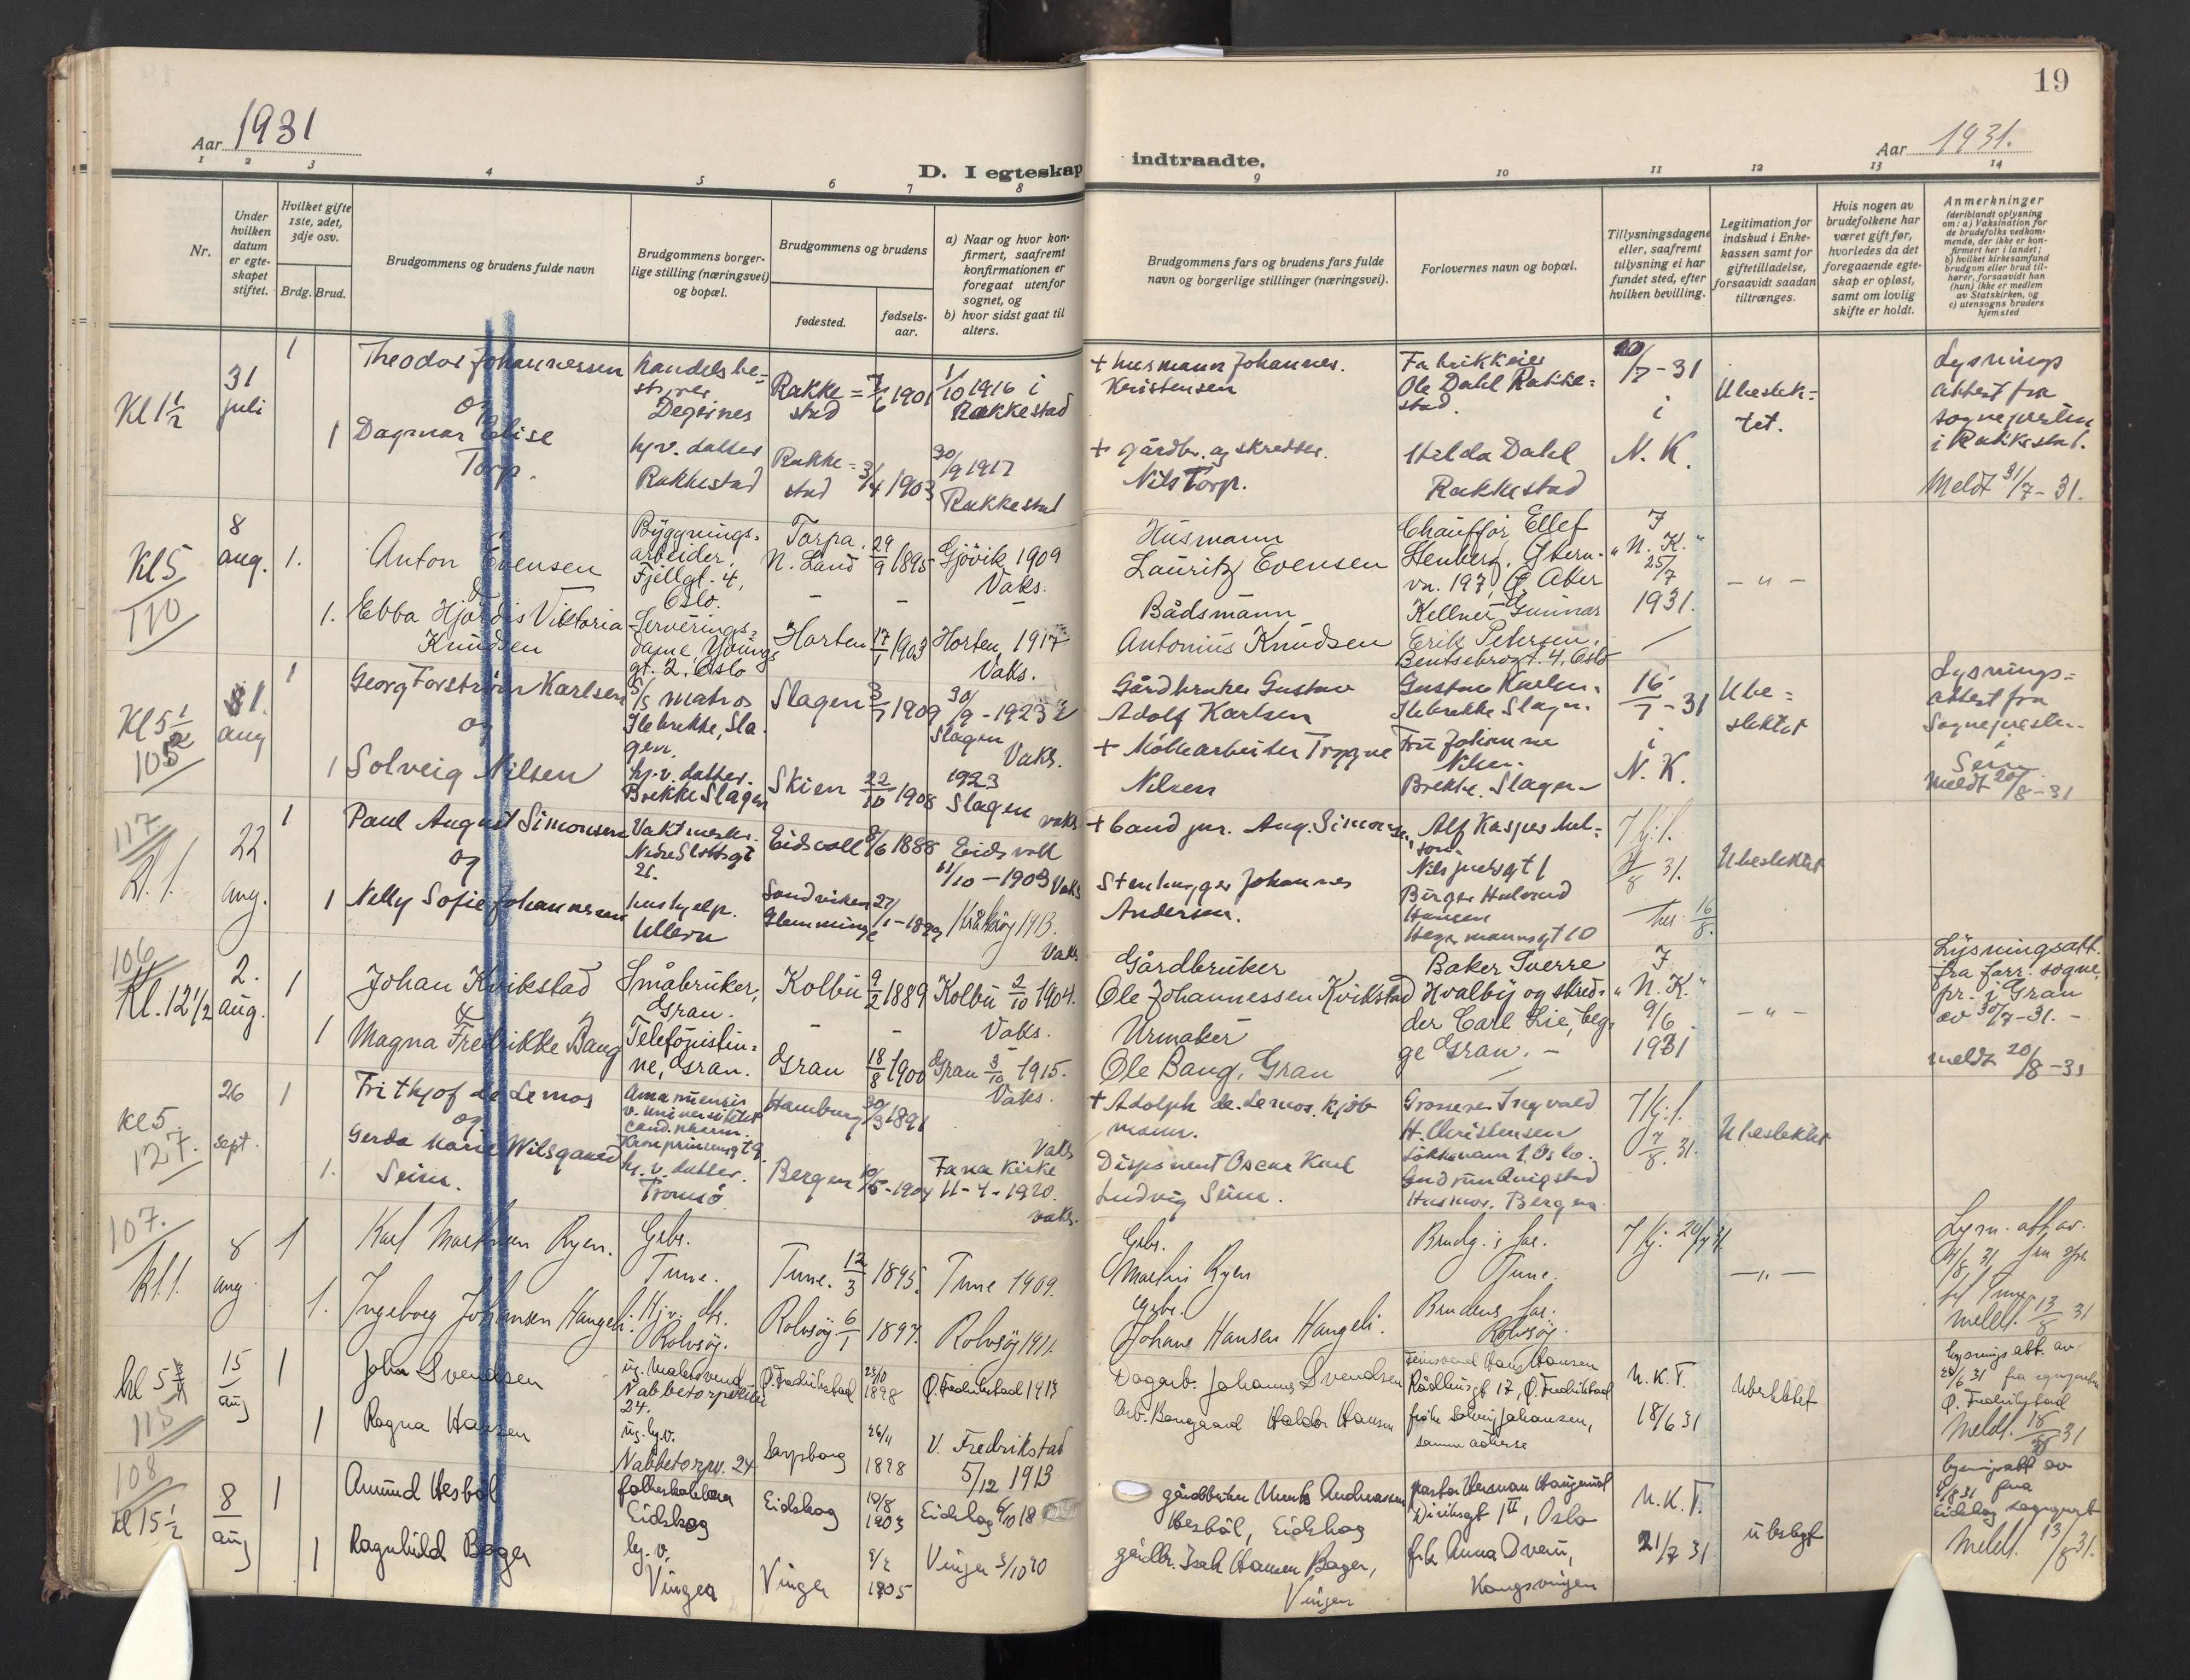 19
Aar 1931
Aar 1931.
D. I egteskap indtraadte.
1 2 3 4 5 6 7 8 9 10 11 12 13 14
Nr.
Under hvilken datum er egteskapet stiftet.
Hvilket gifte 1ste, 2det, 3dje osv.
Brdg. Brud.
Brudgommens og brudens fulde navn
Brudgommens borgerlige stilling (næringsvei) og bopæl.
Brudgommens og brudens
fødested.
fødselsaar.
a) Naar og hvor konfirmert, saafremt konfirmationen er foregaat utenfor sognet, og
b) hvor sidst gaat til alters.
Brudgommens fars og brudens fars fulde navn og borgerlige stillinger (næringsvei).
Forlovernes navn og bopæl.
Tillysningsdagene eller, saafremt tillysning ei har fundet sted, efter hvilken bevilling.
Legitimation for indskud i Enkekassen samt for giftetilladelse, forsaavidt saadan tiltrænges.
Hvis nogen av brudefolkene har været gift før, hvorledes da det foregaaende egteskap er opløst, samt om lovlig skifte er holdt.
Anmerkninger
(deriblandt oplysning om: a) Vaksination for de brudefolks vedkommende, der ikke er konfirmert her i landet; b) hvilket kirkesamfund brudgom eller brud tilhører, forsaavidt han (hun) ikke er medlem av Statskirken, og c) utensogns bruders hjemsted
Kl 1 1/2
31 juli
1
Theodor Johannessen
og
Handelsbestyrer
Degernes
Rakkestad
7/6 1901
1/10 1916 i Rakkestad
+ husmann Johannes Kristensen
Fabrikkeier Ole Dahl Rakkestad.
20/7-31
i
N. K.
Ubeslektet.
Lysningsattest fra sognepresten i Rakkestad.
Meldt 31/7-31.
1
Dagmar Elise Torp.
hj.v. datter
Rakkestad
Rakkestad
3/4 1903
30/9 1917 Rakkestad
+ gårdbr. og skredder Nils Torp.
Hilda Dahl
Rakkestad
Kl 5
110
8 aug.
1.
Anton Evensen
&
Byggningsarbeider, Fjellgt. 4, Oslo.
Torpa, N. Land
29/9 1895
Gjövik 1909
Vaks.
Husmann
Lauritz Evensen
Chauffør Ellef Stenberg,
vn. 197, Ø. Aker
I "N. K."
25/7 1931.
- " -
1.
Ebba Hjördis Viktoria Knudsen
Serveringsdame, Youngsgt. 2, Oslo
Horten
17/1 1903
Horten, 1917
Vaks.
Bådsmann
Antonius Knudsen
Kellner Gunnar Erik Petersen,
Bentsebrogt. 4, Oslo
Kl 5 1/2
105
1. aug
1
Georg Forström Karlsen
og
matros
Ilebrekke, Slagen.
Slagen
3/7 1909
30/9-1923 i Slagen
Vaks.
Gårdbruker Gustav Adolf Karlsen
Gustav Karlsen
Ilebrekke Slagen.
16/7-31
i
N. K.
Ubeslektet
Lysningsattest fra Sognepresten i Sem
Meldt 20/8-31
1
Solveig Nilsen
hj.v. datter.
Brekke Slagen
Skien
22/10 1908
1923 Slagen vaks
+ Møllearbeider Trygve Nilsen
Fru Johanne Nilsen
Brekke. Slagen
117
Kl. 1.
22 aug.
1
Paul August Simonsen
og
Vaktmester.
Nedre Slottsgt 21.
Eidsvoll
8/6 1888
Eidsvoll
11/10-1903 Vaks
+ Cand jur. Aug. Simonsen
Alf Kaspersen
Nils Juelsgt 1
8 31.
16/8.
Ubeslektet
1
Nelly Sofie Johannessen
hushjelp.
Ullern
Sandviken Glemminge
27/1-1899
Kråkerøy 1913.
Vaks
Stenhugger Johannes Andersen.
Birger Halvard Hansen
Hegermannsgt 10
106
Kl. 12 1/2
2. aug.
1
Johan Kvikstad
&
Småbruker, Gran.
Kolbu
9/2 1889
Kolbu 2/10 1904.
Vaks.
Gårdbruker
Ole Johannessen Kvikstad
Baker Sverre Hvalby og skredder Carl Lie, begge Gran. -
I "N. K."
9/6 1931
- " -
Lysningsatt. fra farr. sognepr. i Gran av 30/7-31. -
meldt 20/8-31
1
Magna Fredrikke Bang
Telefonistinne, Gran.
Gran
18/8 1900
Gran 3/10 1915.
Vaks.
Urmaker
Ole Bang, Gran
Kl 5.
127.
26 sept.
1
Frithjof de Lemos
og
Amanuensis v. universitetet cand. pharm.
Kronprinsensgt 9.
Hamburg
30/3 1891
Vaks
+ Adolph de Lemos. kjøbmann.
Grosserer Ingvald H. Christensen
Oslo.
7/8. 31.
Ubeslektet
1.
Gerda Marie Wilsgaard Seim.
hj. v. datter.
Tromsö
Bergen
10/5-1904
Fana Kirke
11-4-1920.
vaks.
Disponent Oscar Karl Ludvig Seim.
Gudrun Quigstad
Husmor. Bergen
107.
Kl. 1.
8 aug.
1
Karl Martinsen Ryen.
Gbr.
Tune.
Tune.
12/3 1895.
Tune 1909.
Gbr.
Martin Ryen
Brudg.s far.
Tune.
20/7 31.
- " -
Meldt. 13/8 31
1.
Ingeborg Johansen Hangeli.
Hjv. dtr.
Rolvsöy.
Rolvsöy
6/1 1897.
Rolvsöy 1911.
Gbr.
Johane Hansen Hangeli.
Brudens far.
Rolvsöy.
kl 5 3/4
115
15 aug
1
John Svendsen
Nabbetorpveien 24.
Ø. Fredrikstad
1898
Ø. Fredrikstad 1913
Dagarb. Johannes Svendsen
Hans Hansen
Rådhusgt 17, Ø. Fredrikstad
N. K. T.
18/6 31
Ubeslektet
Lysningsatt. av
Ø. Fredrikstad
Meldt. 18/8 31
1
Ragna Hansen
ug. hj.v.
Nabbetorpv. 24
Sarpsborg
26/11 1898
V. Fredrikstad
5/12 1913
Haldor Hansen
frøken Solveig Johansen,
samme adresse
108
kl 15 1/2
8 aug
1
Amund Hesböl
folkeskolelærer
Eidskog
Eidskog
10/8 1903
Eidskog 6/10 18
gårdbruker Andreassen Hesböl, Eidskog
pastor Herman Haugerud
Diriksgt 1 II, Oslo
N. K. T.
21/7 31
ubeslegt
lysningsatt av
fra Eidskog sogneprest
Meldt. 13/8 31.
1
Ragnhild Bager
hj. v.
Vinger
Vinger
1905
Vinger 3/10 20
gårdbr. Isak Hansen Bager,
Vinger
frk Anna Overn,
Kongsvinger